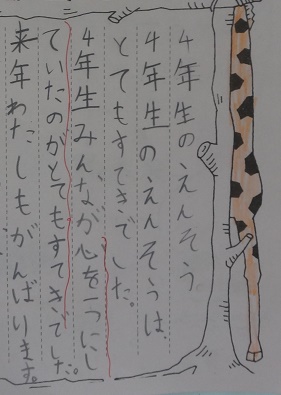 4年生のえんそう
4年生のえんそうは、
とてもすてきでした。
4年生みんなが心を一つにし
ていたのがとてもすてきでした。
来年わたしもがんばります。